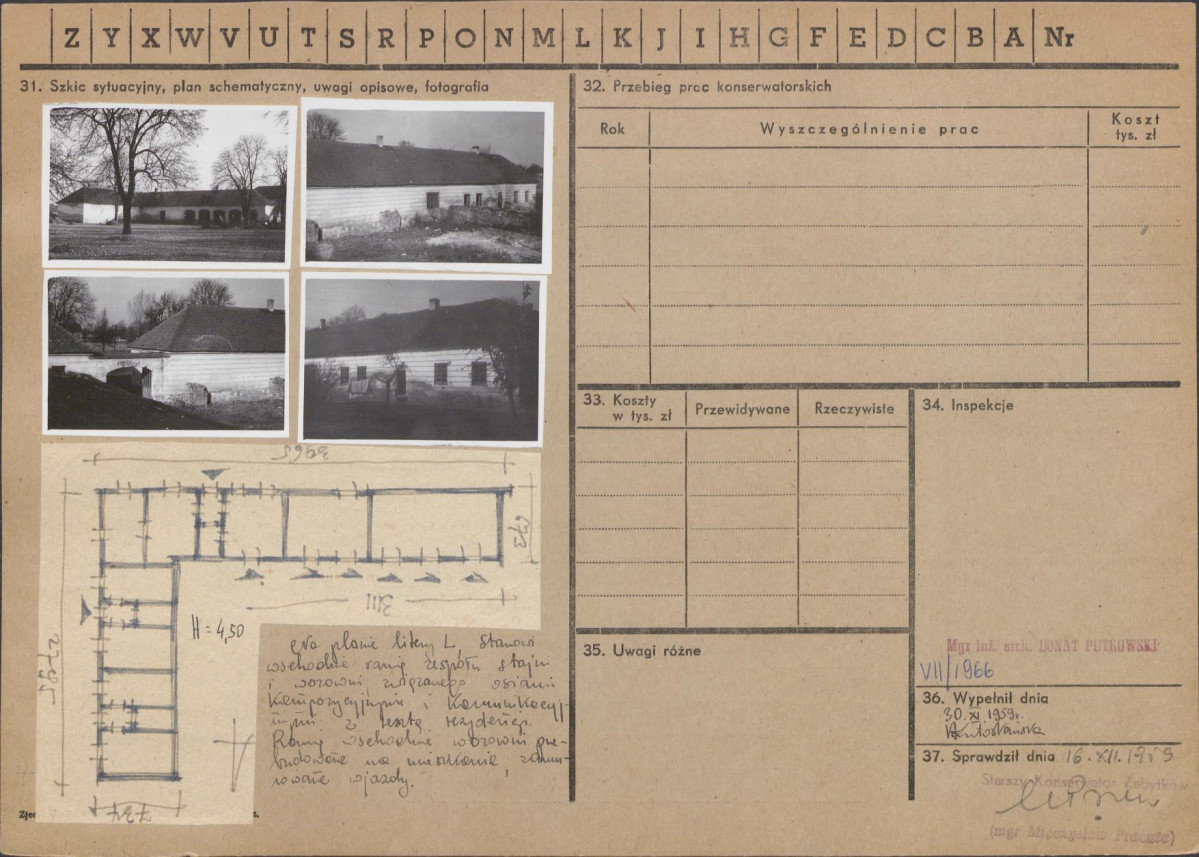 Z Y X W V U T S R P O N M L K J I H G F E D C B A Nr
31. Szkic sytuacyjny, plan schematyczny, uwagi opisowe, fotografia
3965
673
3111
H = 4,50
734
Na planie litery L, Stanowi
wschodnie ramię zespołu stajni
i wozowni, związanego osiami
kompozycyjnymi i komunikacyj-
nymi z resztą rezydencji.
Ramię wschodnie wozowni prze-
budowane na mieszkania, zamu-
rowane wjazdy.
32. Przebieg prac konserwatorskich
Rok
Wyszczególnienie prac
Koszt
tys. zł
33. Koszty
w tys. zł
Przewidywane
Rzeczywiste
34. Inspekcje
Mgr inż. arch. DONAT PUTKOWSKI
VII/1966
35. Uwagi różne
36. Wypełnił dnia
30.XI 1959r.
37. Sprawdził dnia 16.XII.1959
Starszy Konserwator Zabytków
(mgr Mieczysław